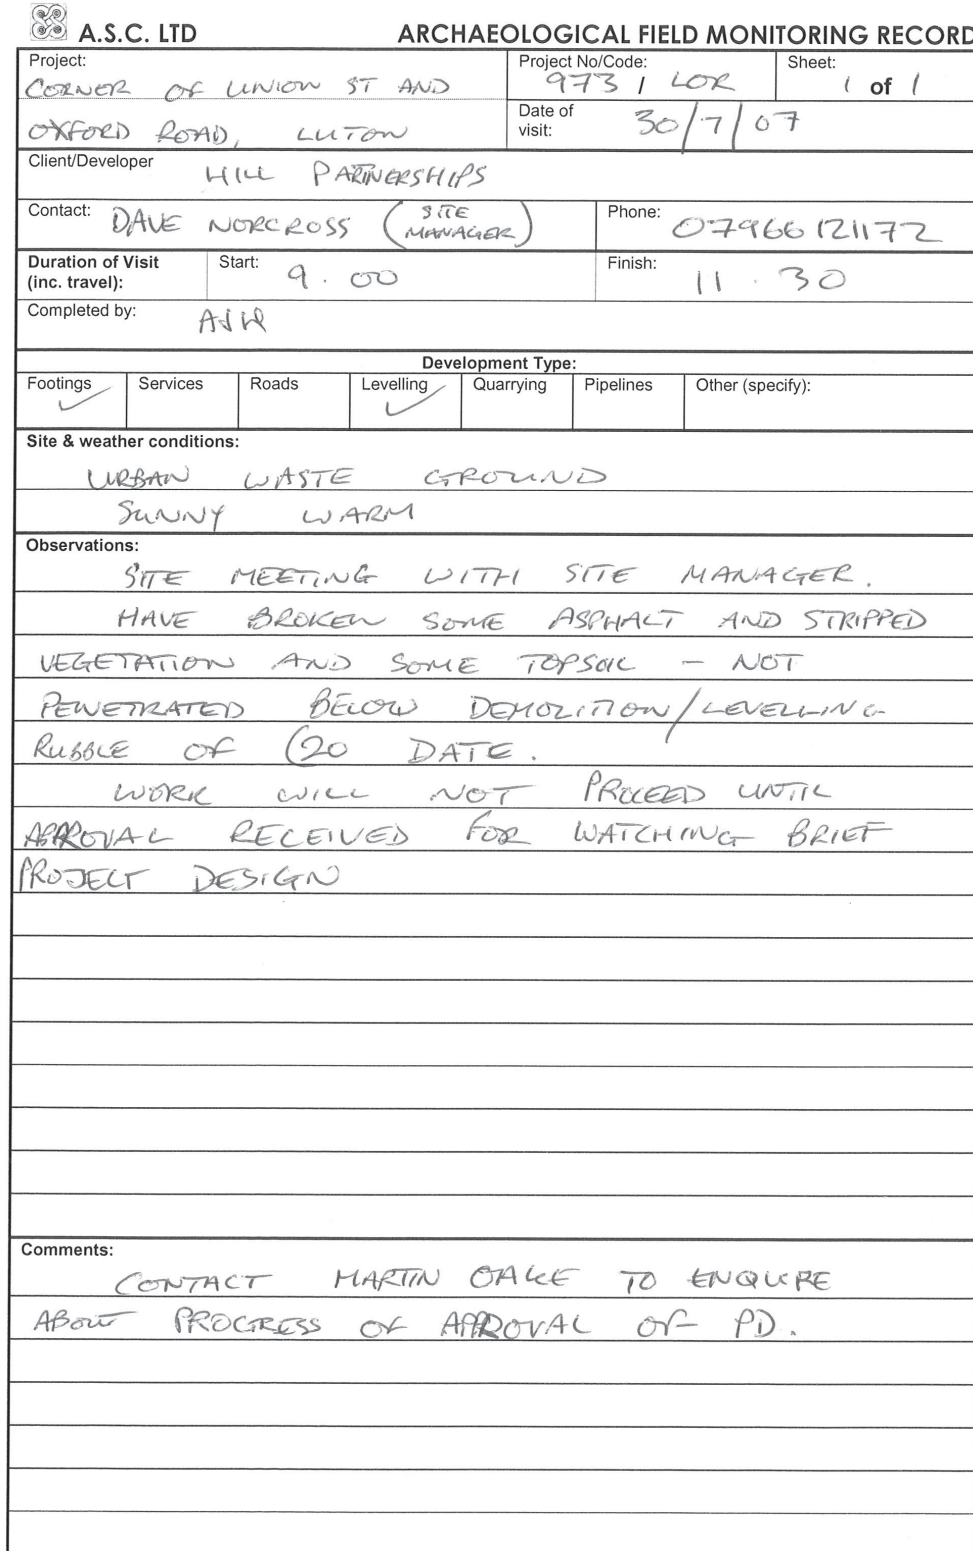 A.S.C. LTD ARCHAEOLOGICAL FIELD MONITORING RECORD
Project: Project No/Code: Sheet:
CORNER OF UNION ST AND 973 / LOR 1 of 1
OXFORD ROAD, LUTON Date of visit: 30/7/07
Client/Developer HILL PARTNERSHIPS
Contact: DAVE NORCROSS (SITE MANAGER) Phone: 07966 121172
Duration of Visit (inc. travel): Start: 9.00 Finish: 11.30
Completed by: AJW
Development Type:
Footings ✓ Services Roads Levelling ✓ Quarrying Pipelines Other (specify):
Site & weather conditions:
URBAN WASTE GROUND
SUNNY WARM
Observations:
SITE MEETING WITH SITE MANAGER.
HAVE BROKEN SOME ASPHALT AND STRIPPED
VEGETATION AND SOME TOPSOIL - NOT
PENETRATED BELOW DEMOLITION/LEVELLING
RUBBLE OF C20 DATE.
WORK WILL NOT PROCEED UNTIL
APPROVAL RECEIVED FOR WATCHING BRIEF
PROJECT DESIGN
Comments:
CONTACT MARTIN OAKE TO ENQUIRE
ABOUT PROGRESS OF APPROVAL OF PD.